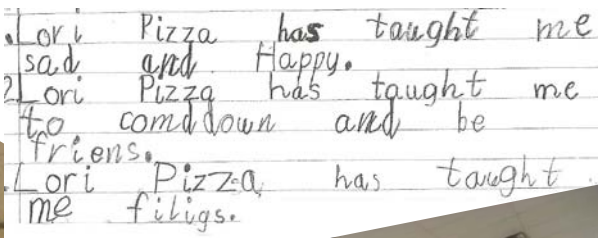 .Lori Pizza has taught me
sad and Happy.
2Lori Pizza has taught me
to comd down and be
friens.
.Lori Pizza has taught
me filigs.